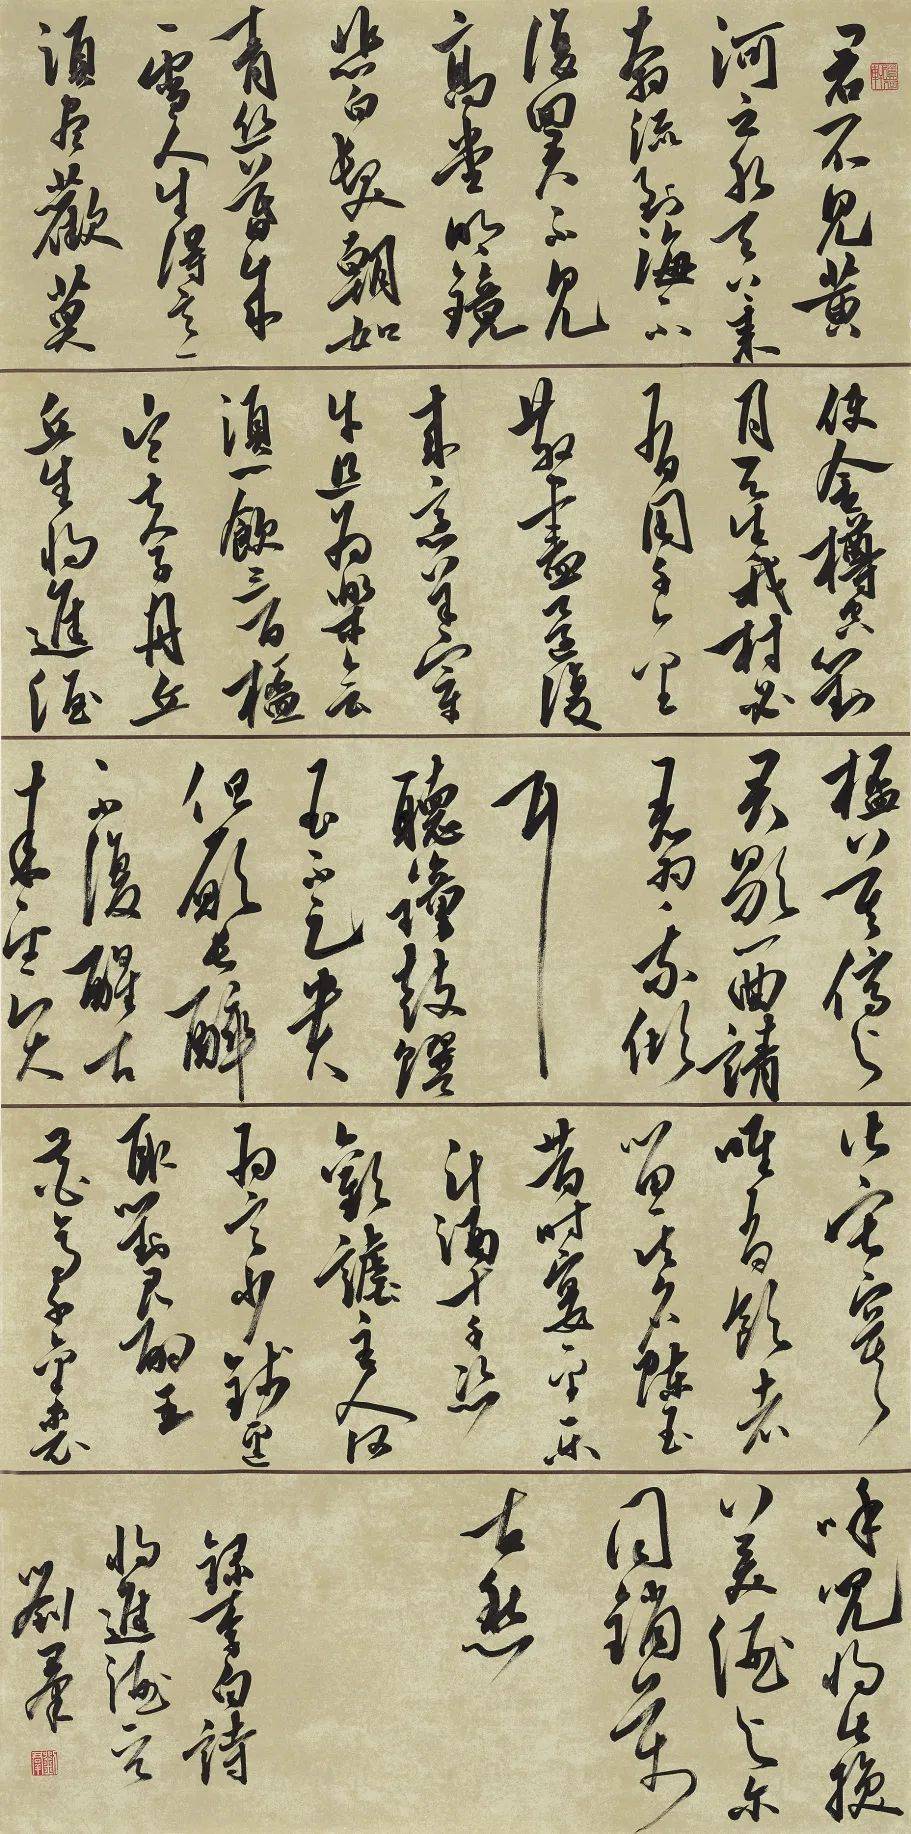 君不見黃
河之水天上来
奔流到海不
復回君不見
高堂明鏡
悲白髮朝如
青丝暮成
雪人生得意
須盡歡莫
使金樽空對
月天生我材必
有用千金
散盡還復
来烹羊宰
牛且為樂會
須一飲三百桮
岑夫子丹丘
丘生將進酒
桮莫停与
君歌一曲請
君為我傾
耳
聽鐘鼓饌
玉不足貴
但願長醉
不復醒古
来聖賢
皆寂寞
唯有飲者
留其名陳王
昔時宴平樂
斗酒十千恣
歡謔主人何
為言少錢
取對君酌五
花馬千金裘
呼兒將出換
美酒与尔
同銷萬
古愁
錄李白詩
將進酒
劉